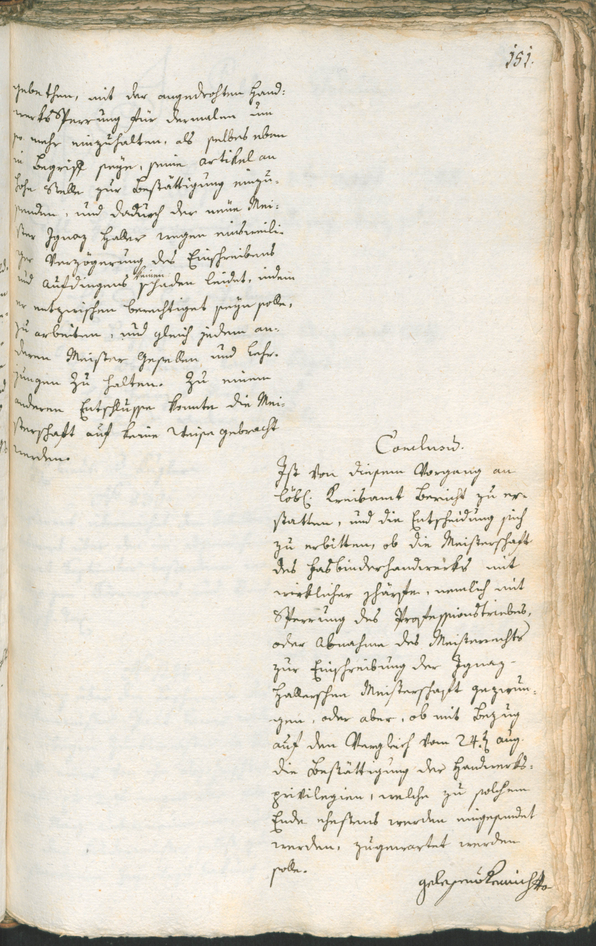 151.
gebethen, mit der angedrohten Hand:
werks Sperrung für dermalen um
so mehr einzuhalten, als selbes eben
in Begriff seye, seine Artikel an
hohe Stelle zur Bestättigung einzu:
senden, und dadurch der neüe Mei:
ster Ignaz Haller wegen einsweili:
ger Verzögerung des Einschreibens
und Aufdingens keinen Schaden leidet, indem
er entzwischen berechtiget seyn solle,
zu arbeiten, und gleich jedem an:
deren Meister Gesellen und Lehr:
jungen zu halten. Zu einem
anderen Entschlusse konnte die Mei:
sterschaft auf keine Weise gebracht
werden.
Conclusum.
Ist von diesem Vorgang an
löbl. Kreisamt Bericht zu er:
statten, und die Entscheidung sich
zu erbitten, ob die Meisterschaft
des Faßbinderhandwerks mit
wirklicher Schärfe, nemlich mit
Sperrung des Professionstriebes,
oder Abnahme des Meisterrechts
zur Einschreibung der Ignaz
Hallerschen Meisterschaft gezwun:
gen, oder aber, ob mit Bezug
auf den Vergleich vom 24.t Aug.
die Bestättigung der Handwerks:
privilegien, welche zu solchem
Ende ehestens werden eingesendet
werden, zugewartet werden
solle.